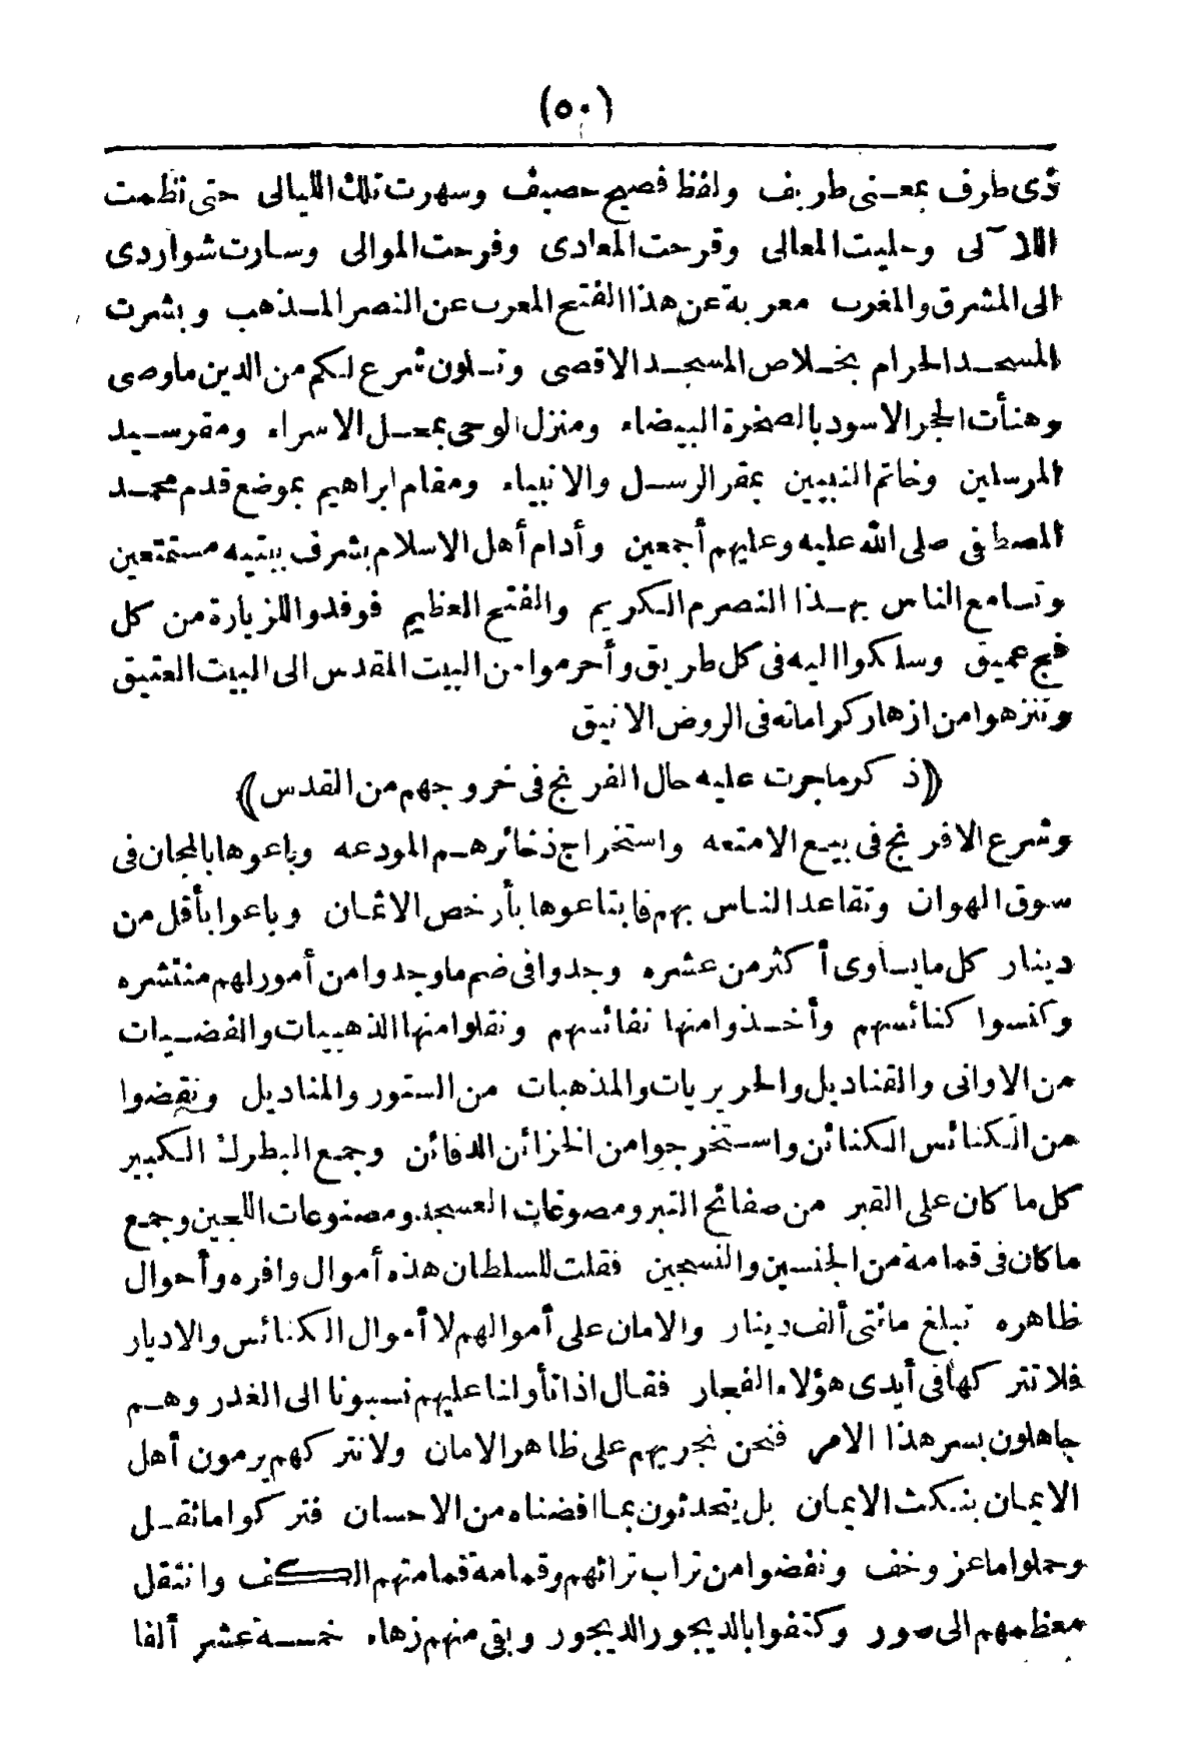 (٥٠)
ذى طرف بمعنى طريف ولفظ فصيح حصيف وسهرت تلك الليالى حتى نظمت
اللآلى وحليت المعالى وقرحت المعادى وفرحت الموالى وسارت شواردى
الى المشرق والمغرب معربة عن هذا الفتح المعرب عن النصر المذهب وبشرت
المسجد الحرام بخلاص المسجد الاقصى وتلون شرع لكم من الدين ماوصى
وهنأت الحجر الاسود بالصخرة البيضاء ومنزل الوحى بمحل الاسراء ومقر سيد
المرسلين وخاتم النبيين بمقر الرسل والانبياء ومقام ابراهيم بموضع قدم محمد
المصطفى صلى الله عليه وعليهم أجمعين وأدام أهل الاسلام بشرف بيتيه مستمتعين
وتسامع الناس بهذا النصر الكريم والفتح العظيم فوفدوا للزيارة من كل
فج عميق وسلكوا اليه فى كل طريق وأحرموا من البيت المقدس الى البيت العتيق
وتنزهوا من ازهار كراماته فى الروض الانيق
﴿ذكر ماجرت عليه حال الفرنج فى خروجهم من القدس﴾
وشرع الافرنج فى بيع الامتعه واستخراج ذخائرهم المودعه وباعوها بالمجان فى
سوق الهوان وتقاعد الناس بهم فابتاعوها بأرخص الاثمان وباعوا بأقل من
دينار كل ما يساوى أكثر من عشره وجدوا فى ضم ماوجدوا من أمور لهم منتشره
وكنسوا كنائسهم وأخذوا منها نفائسهم ونقلوا منها الذهبيات والفضيات
من الاوانى والقناديل والحريريات والمذهبات من الستور والمناديل ونقضوا
من الكنائس الكنائن واستخرجوا من الخزائن الدفائن وجمع البطرك الكبير
كل ما كان على القبر من صفائح التبر ومصوغات العسجد ومصنوعات اللجين وجمع
ماكان فى قمامة من الجنسين والنسجين فقلت للسلطان هذه أموال وافره وأحوال
ظاهره تبلغ مائتى ألف دينار والامان على أموالهم لا أموال الكنائس والاديار
فلا تتركها فى أيدى هؤلاء الفجار فقال اذا تأولنا عليهم نسبونا الى الغدر وهم
جاهلون بسر هذا الامر فنحن نجريهم على ظاهر الامان ولا نتركهم يرمون أهل
الايمان بنكث الايمان بل يتحدثون بما افضناه من الاحسان فتركوا ما ثقل
وحملوا ماعز وخف ونفضوا من تراب تراثهم وقمامة قمامتهم الكف وانتقل
معظمهم الى صور وكتفوا بالديجور الديجور وبقى منهم زهاء خمسة عشر ألفا